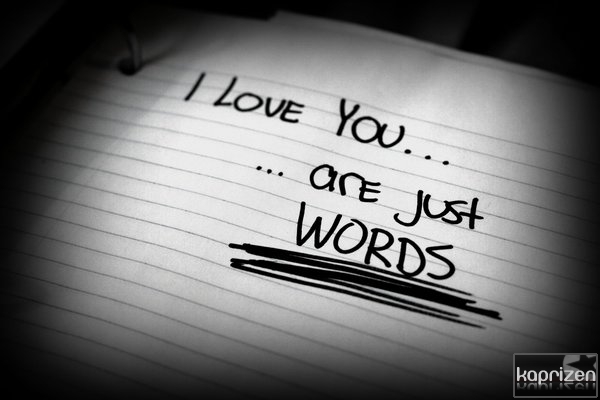 I LOVE YOU...
... are just
WORDS
kaprizen